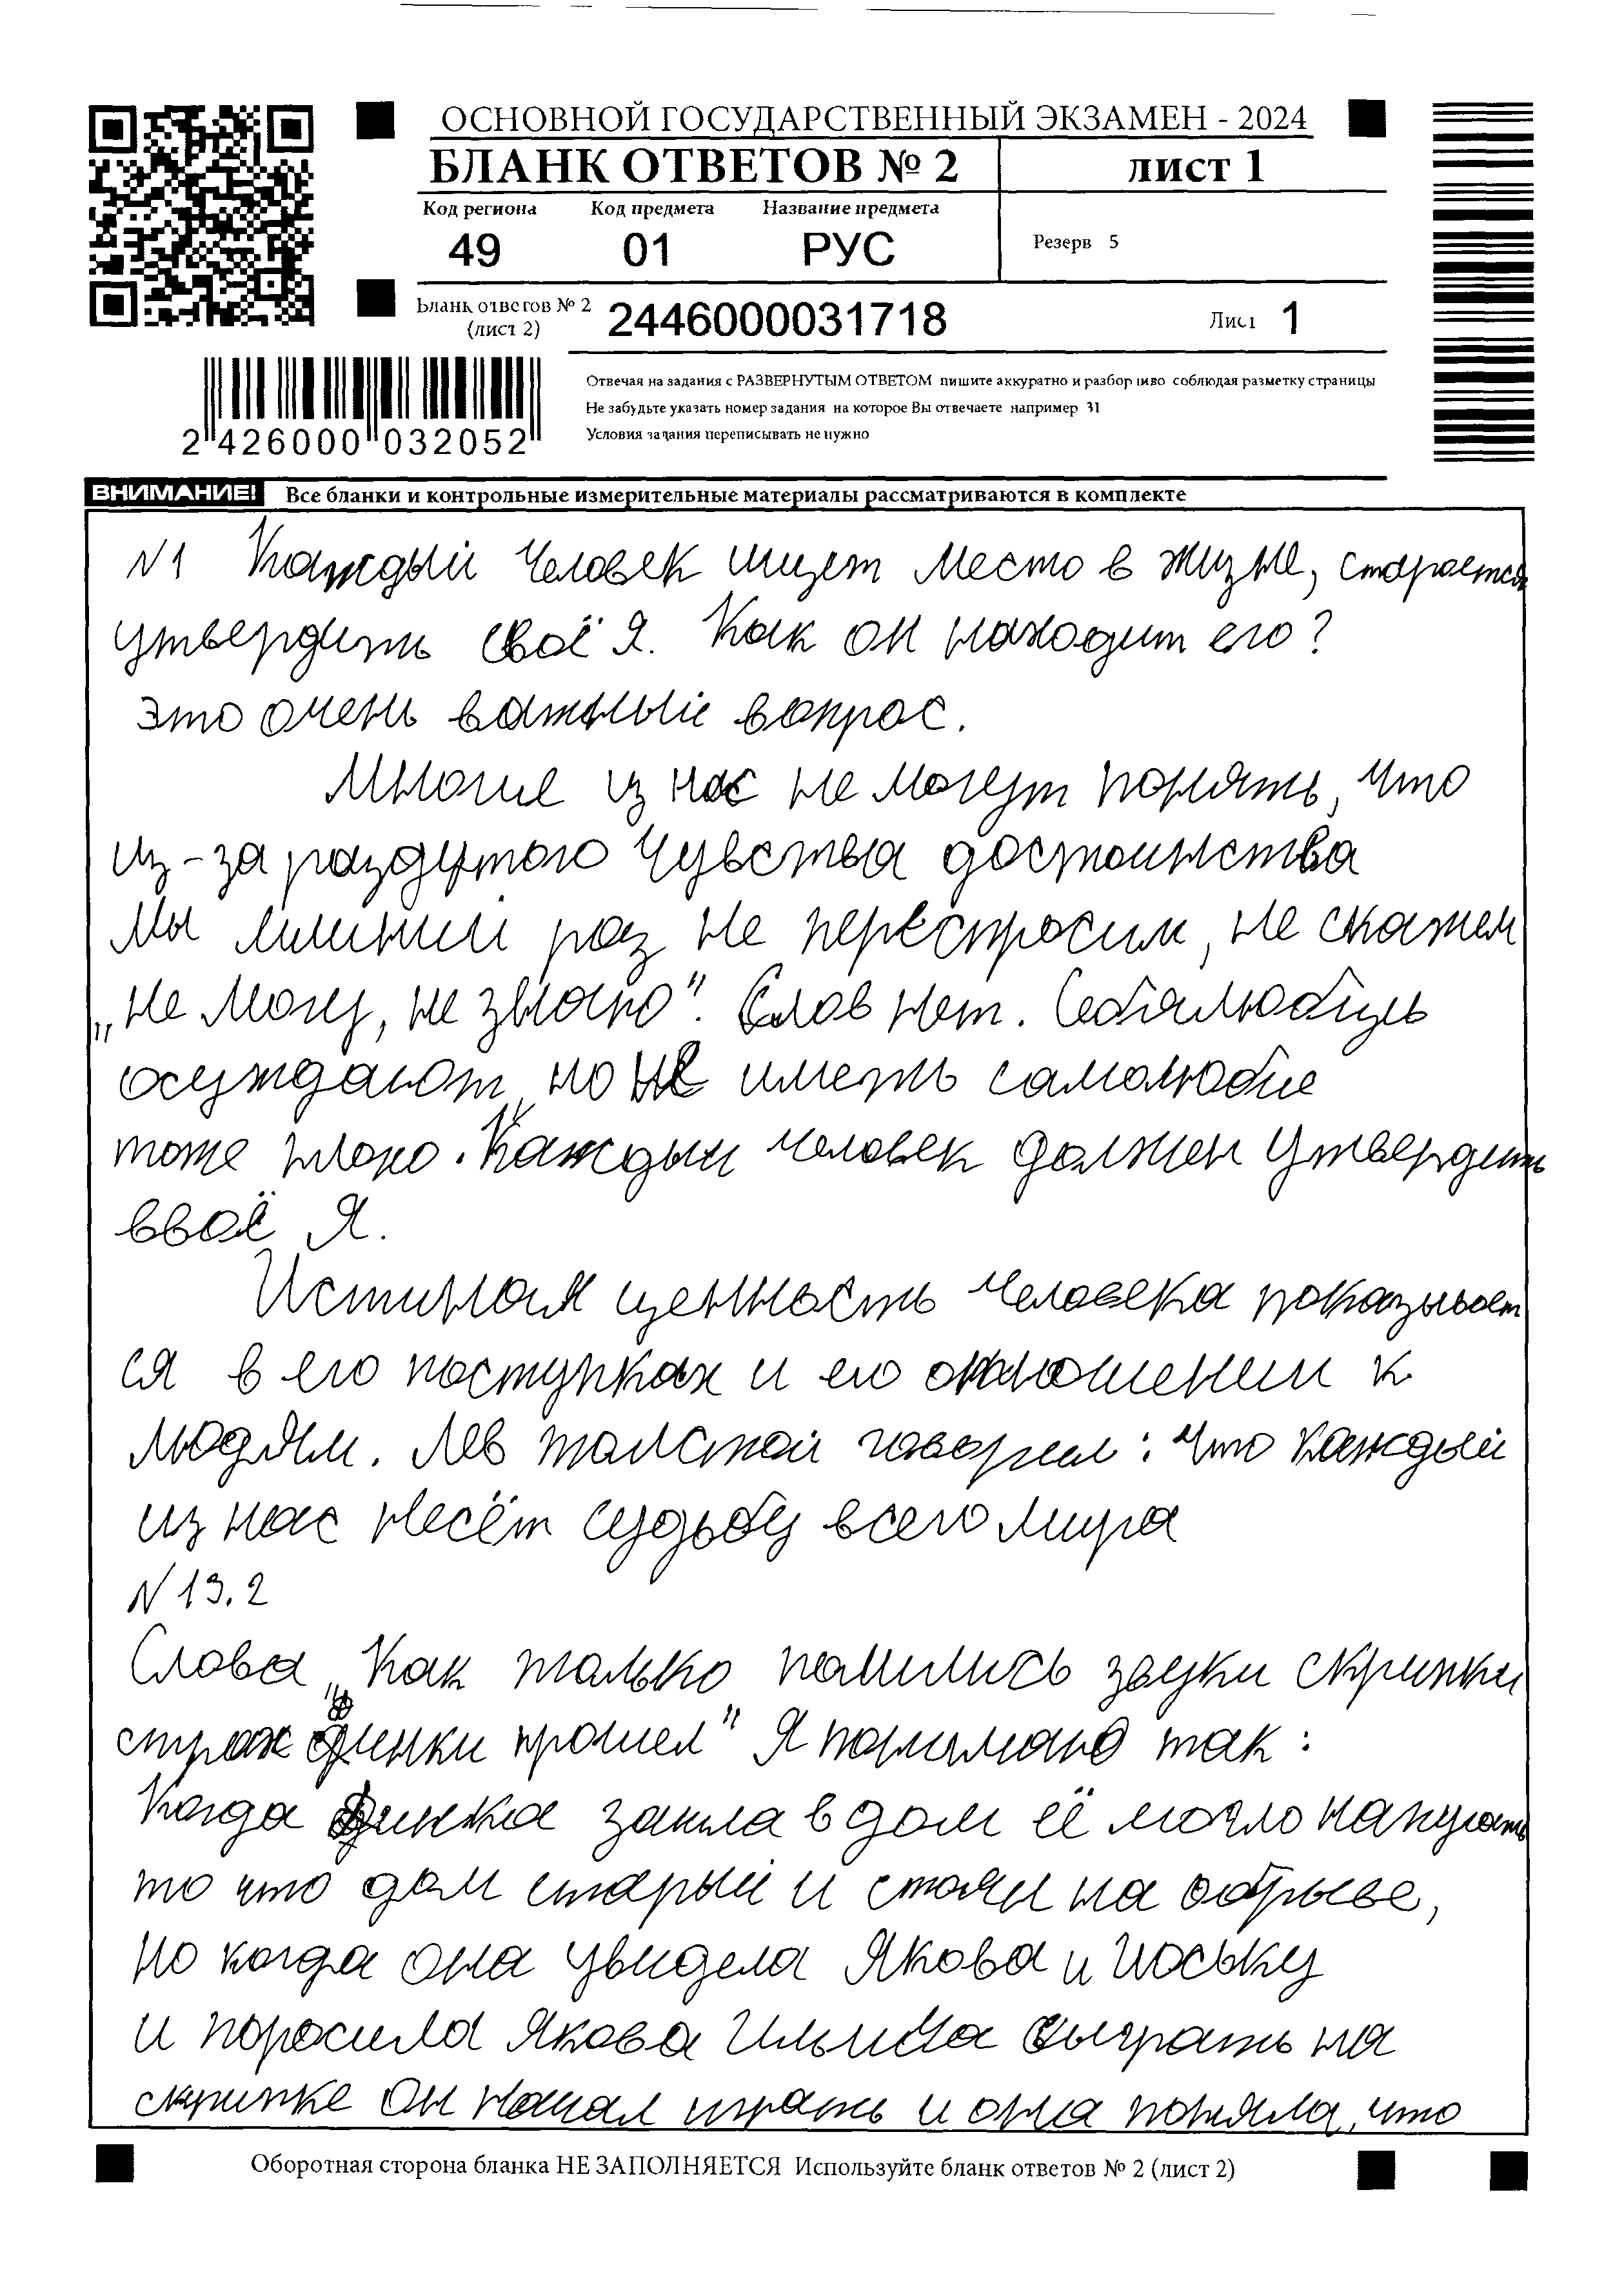 ОСНОВНОЙ ГОСУДАРСТВЕННЫЙ ЭКЗАМЕН - 2024
БЛАНК ОТВЕТОВ № 2
лист 1
Код региона Код предмета Название предмета
49 01 РУС
Резерв 5
Бланк ответов № 2
(лист 2)
2446000031718
Лист 1
2 426000 032052
Отвечая на задания с РАЗВЕРНУТЫМ ОТВЕТОМ пишите аккуратно и разборчиво соблюдая разметку страницы
Не забудьте указать номер задания на которое Вы отвечаете например 31
Условия задания переписывать не нужно
ВНИМАНИЕ! Все бланки и контрольные измерительные материалы рассматриваются в комплекте
N1 Каждый человек ищет место в жизне, старается
утвердить своё Я. Как он находит его?
это очень важный вопрос.
Многие из нас не могут понять, что
из-за раздутого чувства достоинства
мы лишний раз не переспросим, не скажем
„не могу, не знаю". Слов нет. Себялюбцы
осуждают, но не иметь самолюбие
тоже плохо. Каждый человек должен утвердить
ввоё Я.
Истиная ценность человека показывает
ся в его поступках и его отношении к
людям. Лев толстой говорил: что каждый
из нас несёт судьбу всего мира
N 13.2
Слова „Как только полились звуки скрипки
страх динки прошел" Я понимаю так:
Когда Динка зашла в дом её могло напугать
то что дом старый и стоял на обрыве,
но когда она увидела Якова и Иоську
и поросила Якова Ильича сыграть на
скрипке Он начал играть и она поняла, что
Оборотная сторона бланка НЕ ЗАПОЛНЯЕТСЯ Используйте бланк ответов № 2 (лист 2)